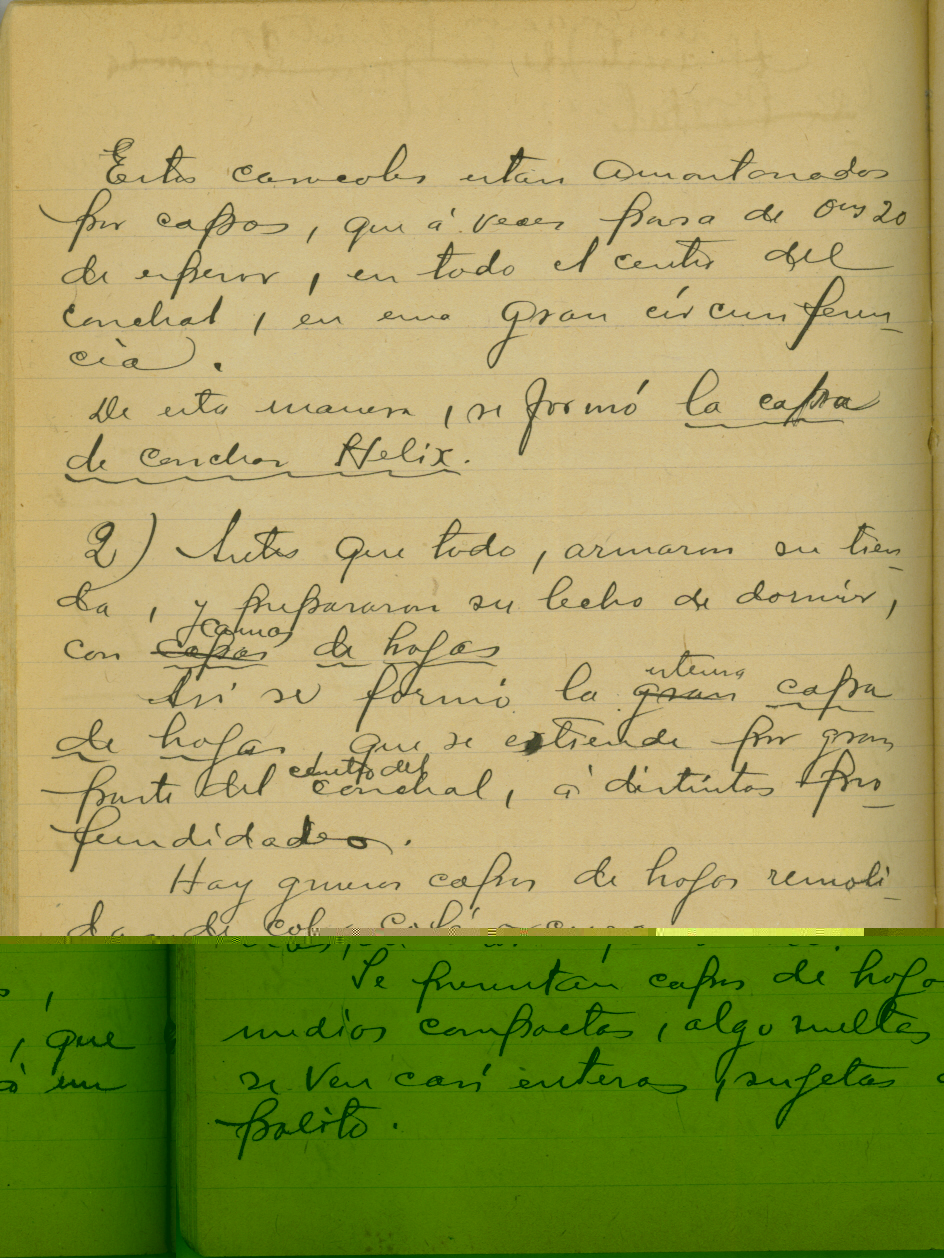 Estos caracoles estan amontonados
por capas, que á veces pasa de 0m20
de espesor, en todo el centro del
conchal, en una gran circunferen-
cia).
De esta manera, se formó la capa
de conchas Helix.
2) Antes que todo, armaron su tien-
da, y prepararon su lecho de dormir,
camas
con capas de hojas
Asi se formó la gran capa
externa
de hojas, que se extiende por gran
centro del
parte del conchal, á distintas pro-
fundidades.
Hay gruesas capas de hojas remoli-
Se presentan capas de hoja
medios compactas, algo sueltas
se ven casi enteras, sujetas
palito.
, que
un